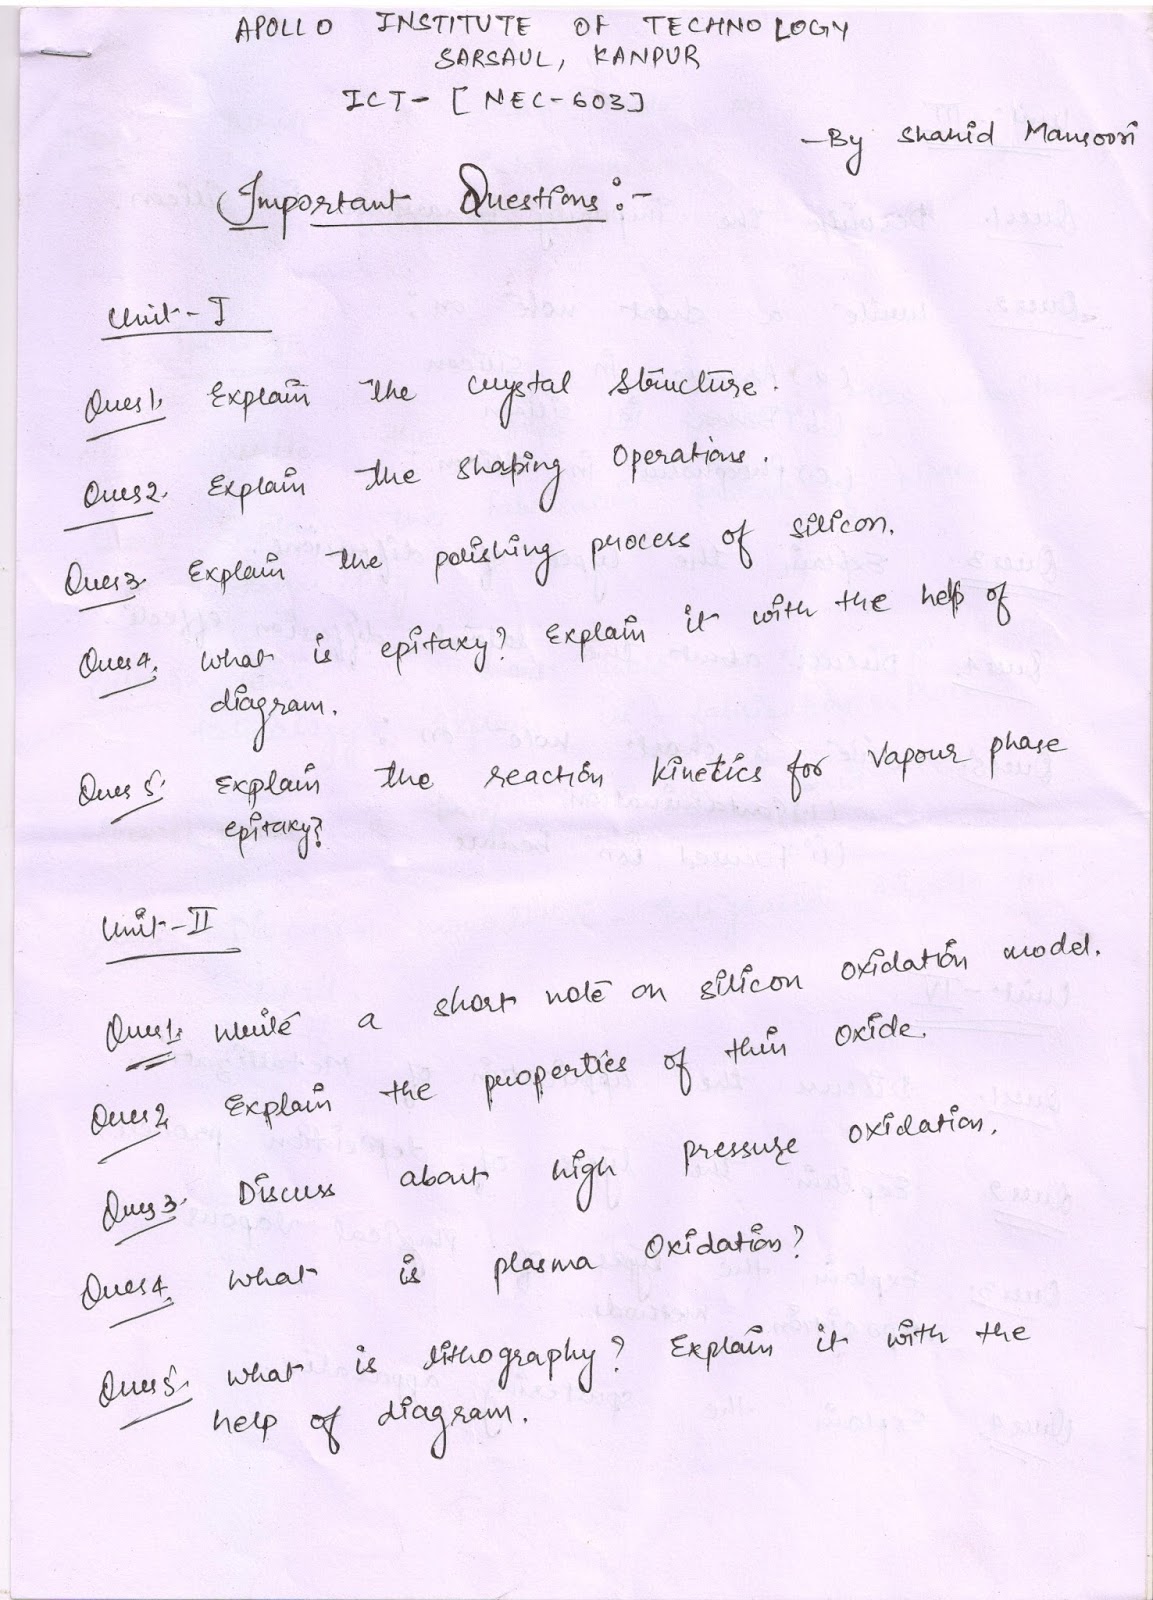 APOLLO INSTITUTE OF TECHNOLOGY
SARSAUL, KANPUR
ICT- [NEC-603]
-By Shahid Mansoori
Important Questions:-
Unit-I
Ques1. Explain the crystal structure.
Ques2. Explain the shaping operations.
Ques3. Explain the polishing process of silicon.
Ques4. What is epitaxy? Explain it with the help of
diagram.
Ques5. Explain the reaction kinetics for vapour phase
epitaxy?
Unit-II
Ques1. Write a short note on silicon oxidation model.
Ques2. Explain the properties of thin oxide.
Ques3. Discuss about high pressure oxidation.
Ques4. What is plasma oxidation?
Ques5. What is lithography? Explain it with the
help of diagram.